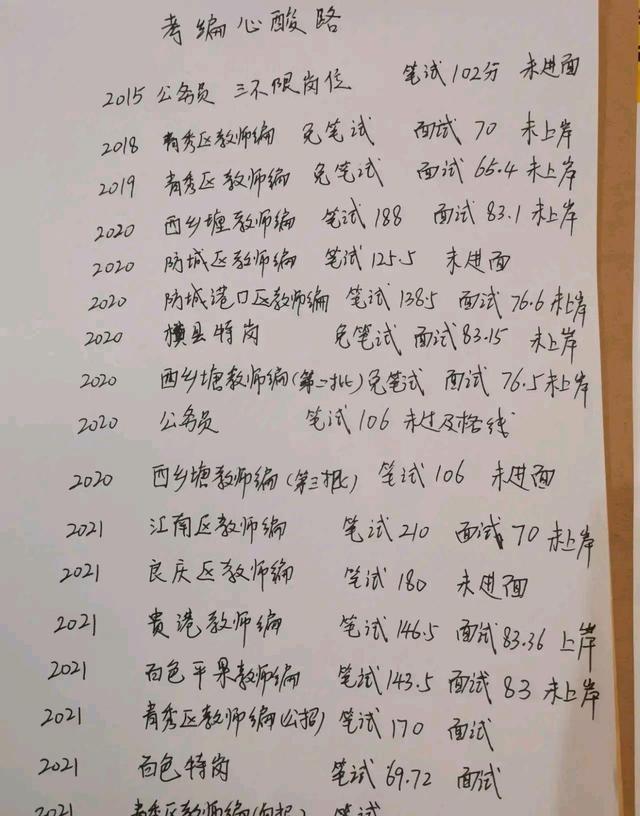 考编心酸路
2015 公务员 三不限岗位 笔试102分 未进面
2018 青秀区教师编 免笔试 面试70 未上岸
2019 青秀区教师编 免笔试 面试65.4未上岸
2020 西乡塘教师编 笔试188 面试83.1未上岸
2020 防城区教师编 笔试125.5 未进面
2020 防城港口区教师编 笔试138.5 面试76.6未上岸
2020 横县特岗 免笔试 面试83.15 未上岸
2020 西乡塘教师编(第二批)免笔试 面试76.5未上岸
2020 公务员 笔试106 未过及格线
2020 西乡塘教师编(第三批) 笔试106 未进面
2021 江南区教师编 笔试210 面试70未上岸
2021 良庆区教师编 笔试180 未进面
2021 贵港教师编 笔试146.5 面试83.36 上岸
2021 百色平果教师编 笔试143.5 面试83 未上岸
2021 青秀区教师编(公招) 笔试170 面试
2021 百色特岗 笔试69.72 面试
2021 青秀区教师编( 笔试